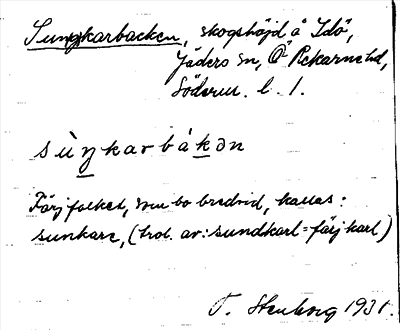 Sungkarbacken, skogshöjd å Idö,
Jäders sn, Ö Rekarne hd,
Söderm. l. 1.
sùŋkarbákən
Färjfolket, som bo bredvid, kallas:
sunkare, (trol. av: sundkarl = färjkarl)
T. Stenborg 1931.